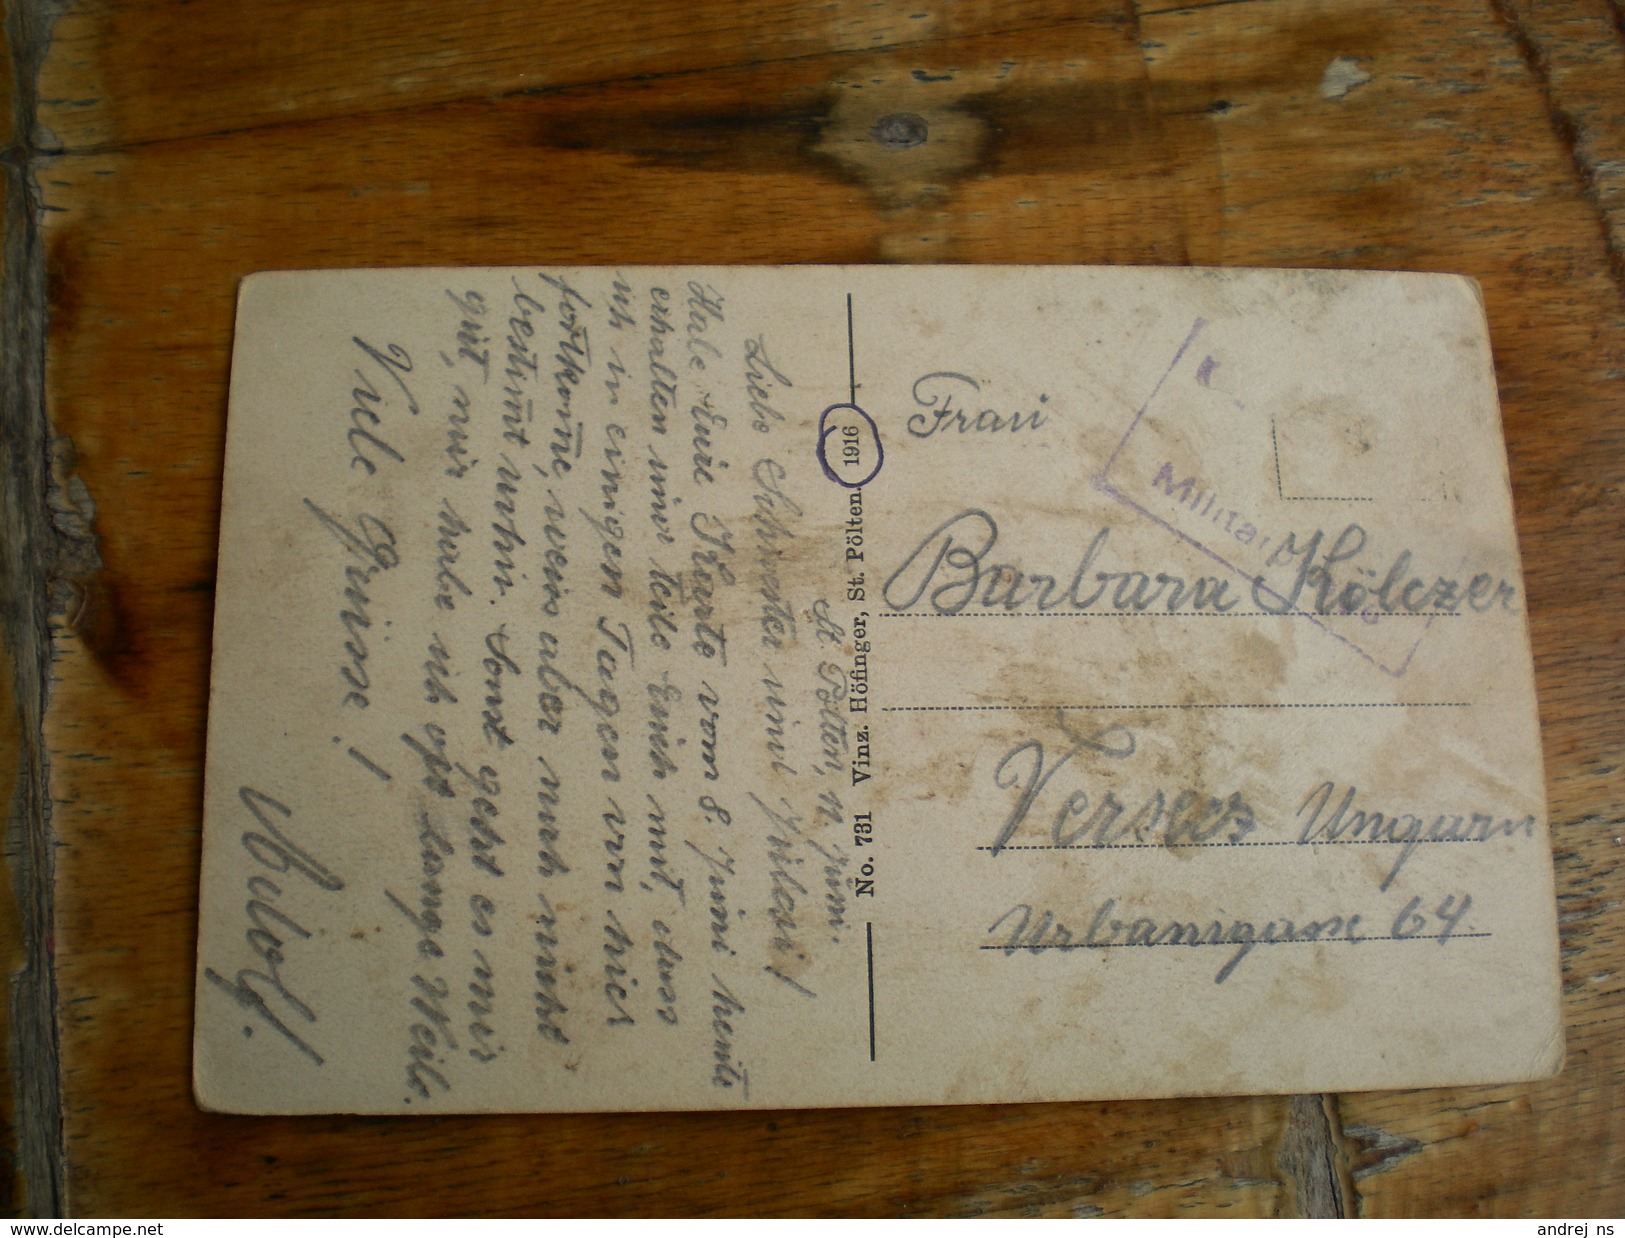 St. Pölten, 11. Juni.
Liebe Schwester und Julcsi!
Habe Eure Karte vom 8. Juni heute
erhalten und teile Euch mit, dass
ich in einigen Tagen von hier
fortkom̅e, weiss aber noch nicht
bestim̅t wohin. Sonst geht es mir
gut, nur habe ich oft Lange Weile.
Viele Grüsse!
Adolf.
No. 731 Vinz. Höfinger, St. Pölten. 1916
Militär
Frau
Barbara Kölczer
Versecz Ungarn
Urbanigasse 64.
www.delcampe.net
andrej ns